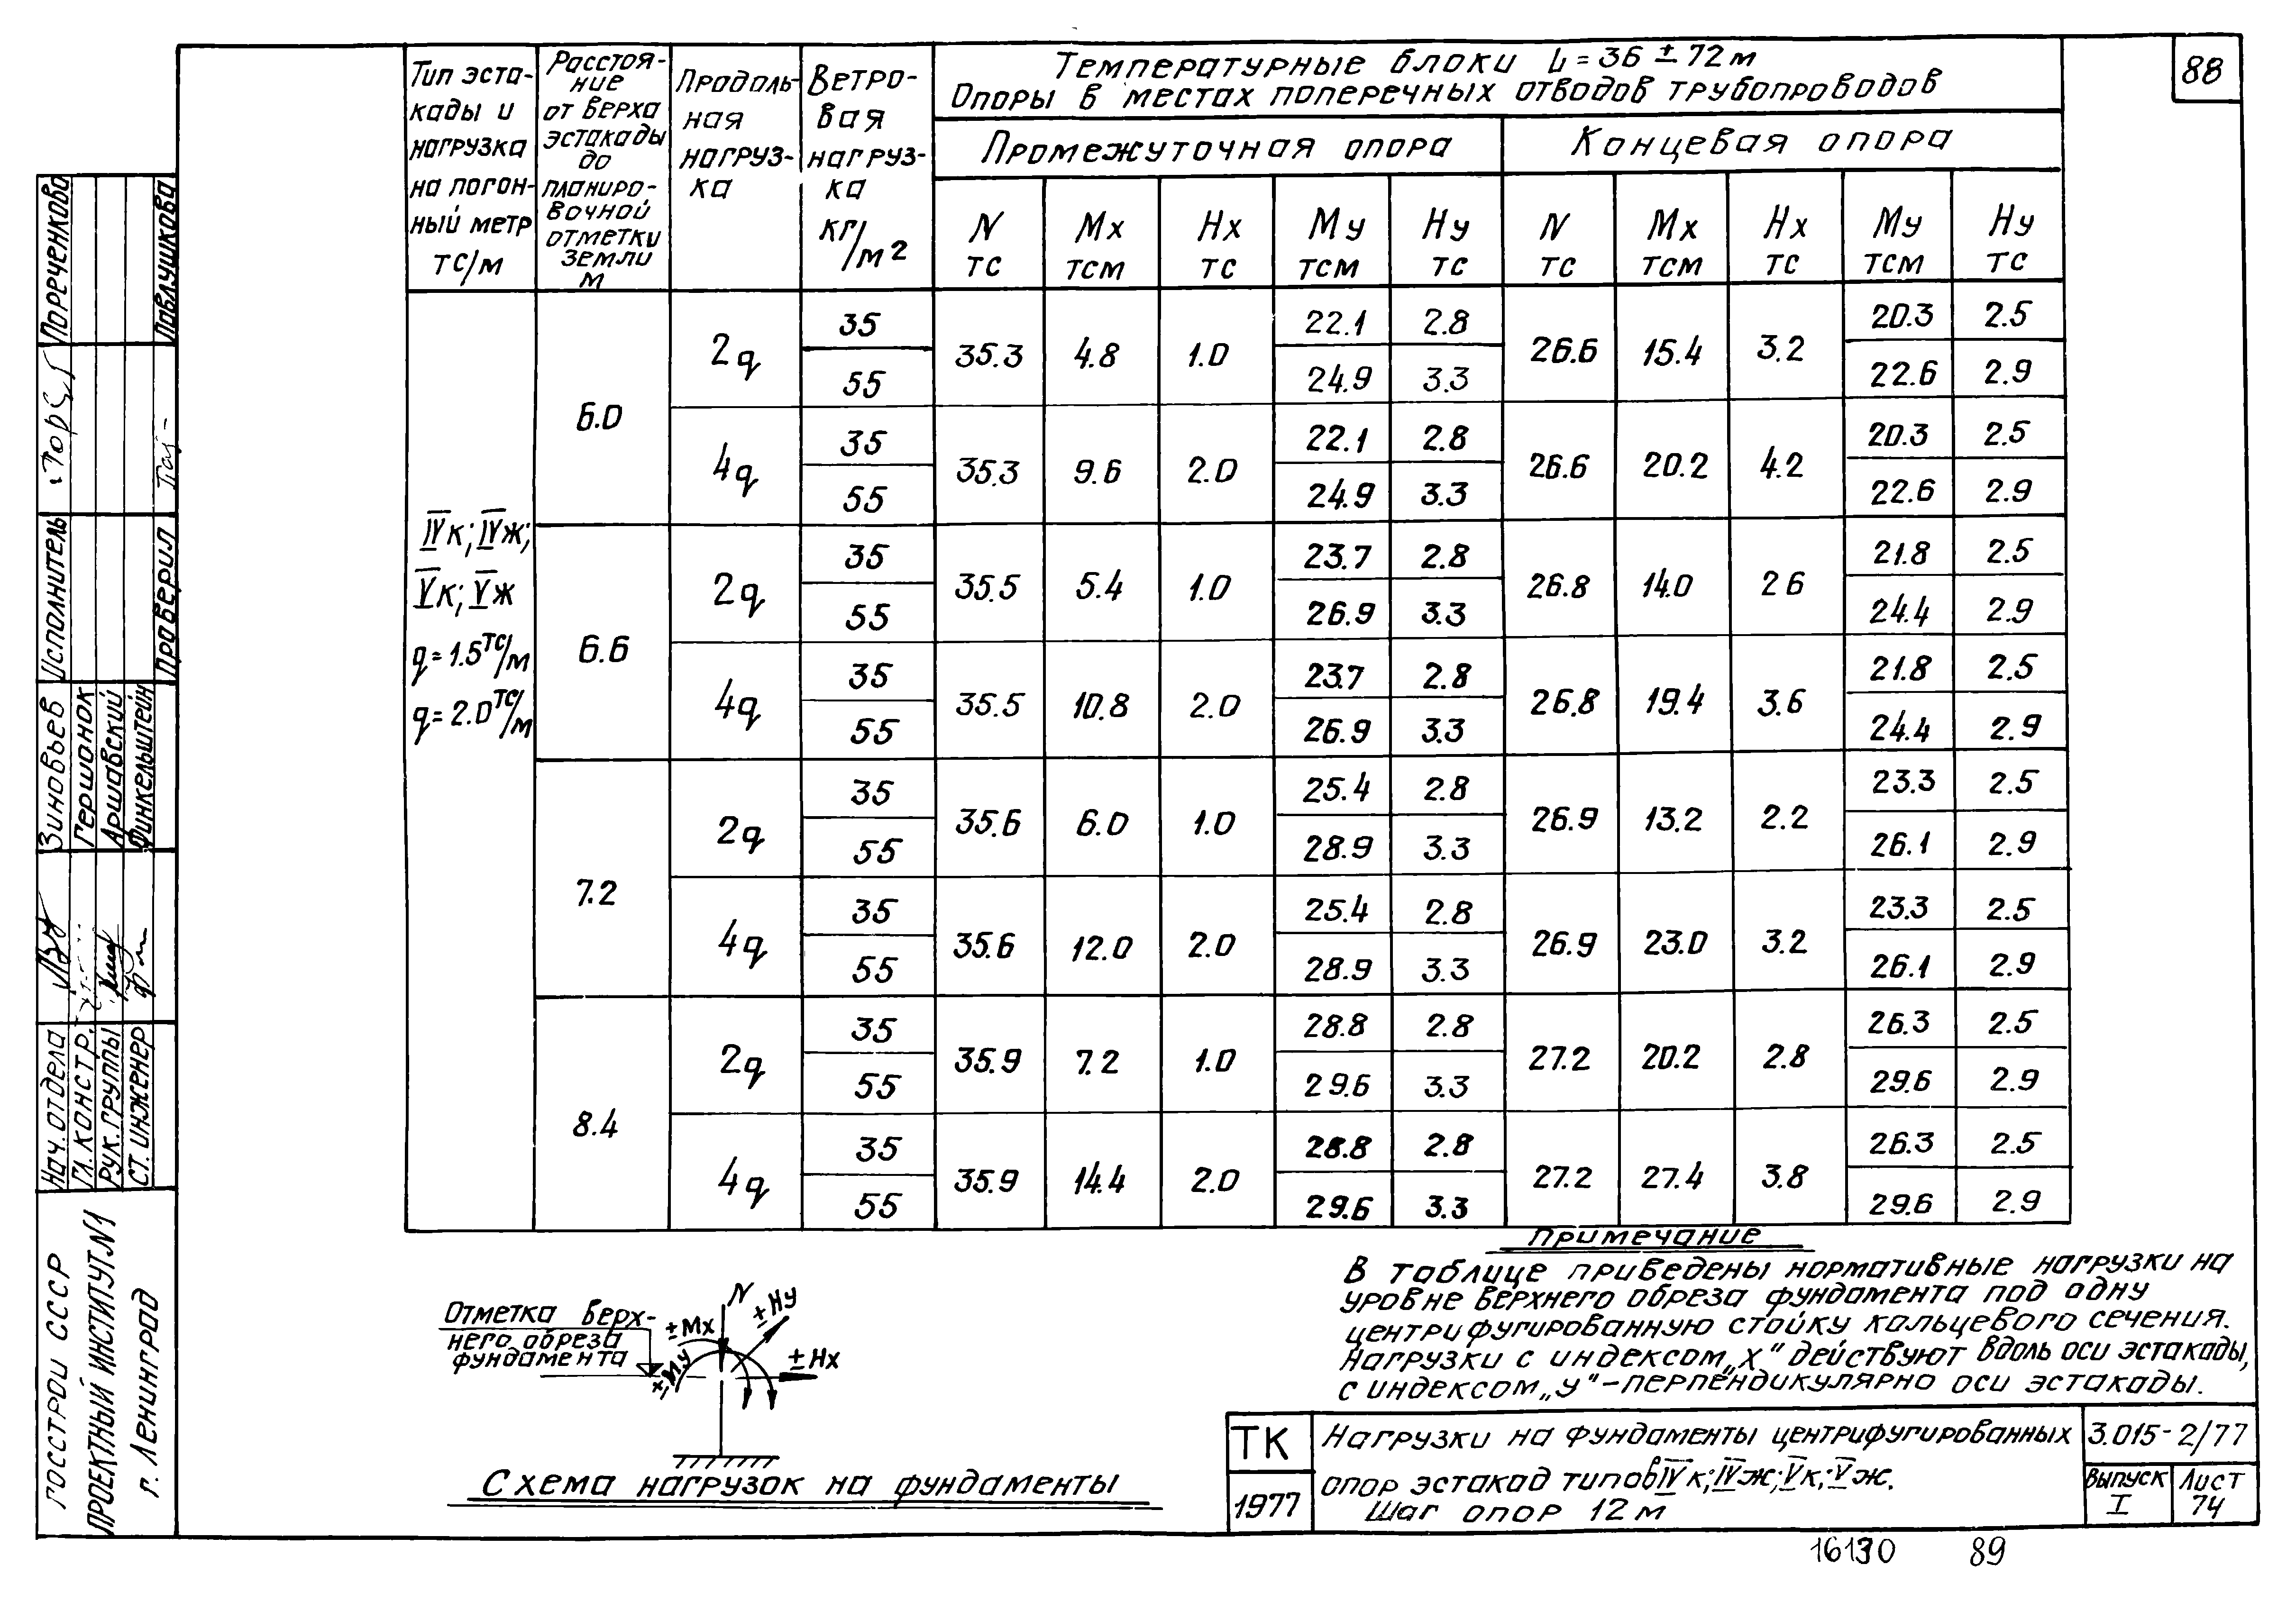 88
Температурные блоки L = 36 ± 72 м
Опоры в местах поперечных отводов трубопроводов
Тип эста-
кады и
нагрузка
на погон-
ный метр
тс/м
Расстоя-
ние
от верха
эстакады
до
планиро-
вочной
отметки
земли
м
Продоль-
ная
нагруз-
ка
Ветро-
вая
нагруз-
ка
кг/м²
Промежуточная опора
Концевая опора
N тс Mx тсм Hx тс My тсм Hy тс N тс Mx тсм Hx тс My тсм Hy тс
IVк; IVж;
Vк; Vж
q = 1.5 тс/м
q = 2.0 тс/м
6.0 2q 35 35.3 4.8 1.0 22.1 2.8 26.6 15.4 3.2 20.3 2.5
55 24.9 3.3 22.6 2.9
4q 35 35.3 9.6 2.0 22.1 2.8 26.6 20.2 4.2 20.3 2.5
55 24.9 3.3 22.6 2.9
6.6 2q 35 35.5 5.4 1.0 23.7 2.8 26.8 14.0 2 6 21.8 2.5
55 26.9 3.3 24.4 2.9
4q 35 35.5 10.8 2.0 23.7 2.8 26.8 19.4 3.6 21.8 2.5
55 26.9 3.3 24.4 2.9
7.2 2q 35 35.6 6.0 1.0 25.4 2.8 26.9 13.2 2.2 23.3 2.5
55 28.9 3.3 26.1 2.9
4q 35 35.6 12.0 2.0 25.4 2.8 26.9 23.0 3.2 23.3 2.5
55 28.9 3.3 26.1 2.9
8.4 2q 35 35.9 7.2 1.0 28.8 2.8 27.2 20.2 2.8 26.3 2.5
55 29.6 3.3 29.6 2.9
4q 35 35.9 14.4 2.0 28.8 2.8 27.2 27.4 3.8 26.3 2.5
55 29.6 3.3 29.6 2.9
Примечание
В таблице приведены нормативные нагрузки на
уровне верхнего обреза фундамента под одну
центрифугированную стойку кольцевого сечения.
Нагрузки с индексом „x" действуют вдоль оси эстакады,
с индексом „y" - перпендикулярно оси эстакады.
Отметка верх-
него обреза
фундамента
N
±Hy
±Mx
±My
±Hx
Схема нагрузок на фундаменты
ТК
1977
Нагрузки на фундаменты центрифугированных
опор эстакад типов IVк; IVж; Vк; Vж.
Шаг опор 12 м
3.015-2/77
Выпуск
I
Лист
74
16130 89
Пореченкова
Павлушкова
Исполнитель
Проверил
Зиновьев
Гершанок
Аршавский
Финкельштейн
Нач. отдела
Гл. констр.
Рук. группы
Ст. инженер
Госстрой СССР
Проектный институт N1
г. Ленинград